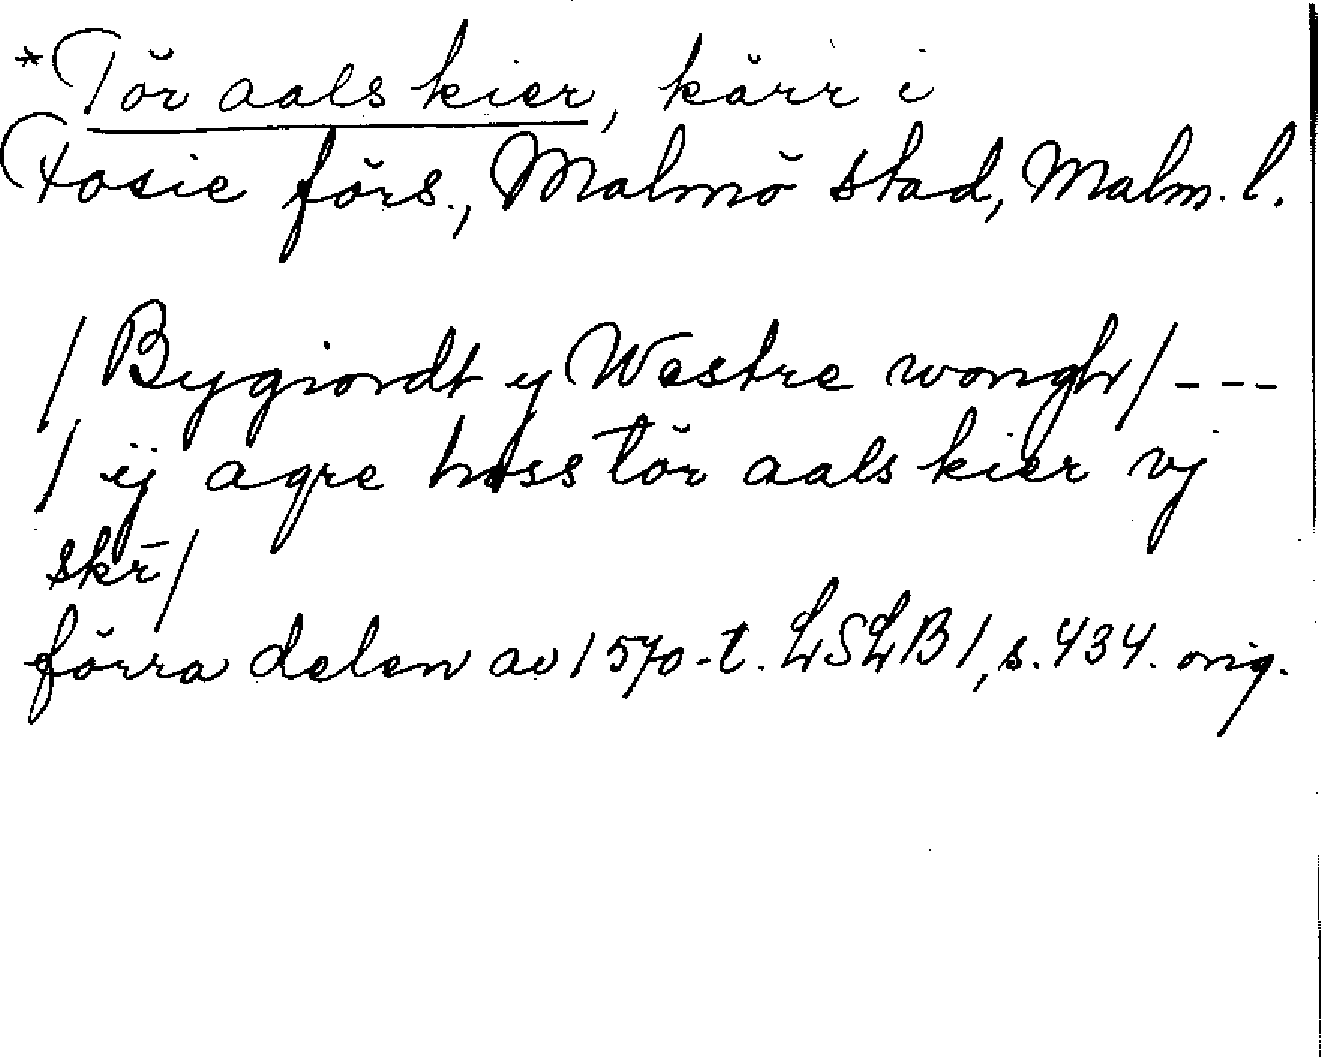 *Tör aals kier, kärr i
Fosie förs., Malmö stad, Malm. l.
/ Bygiordt y Westre wongh / - - -
/ ij agre hoss tör aals kier vj
skr̄ /
förra delen av 1570-t. LSLB 1, s. 434. orig.